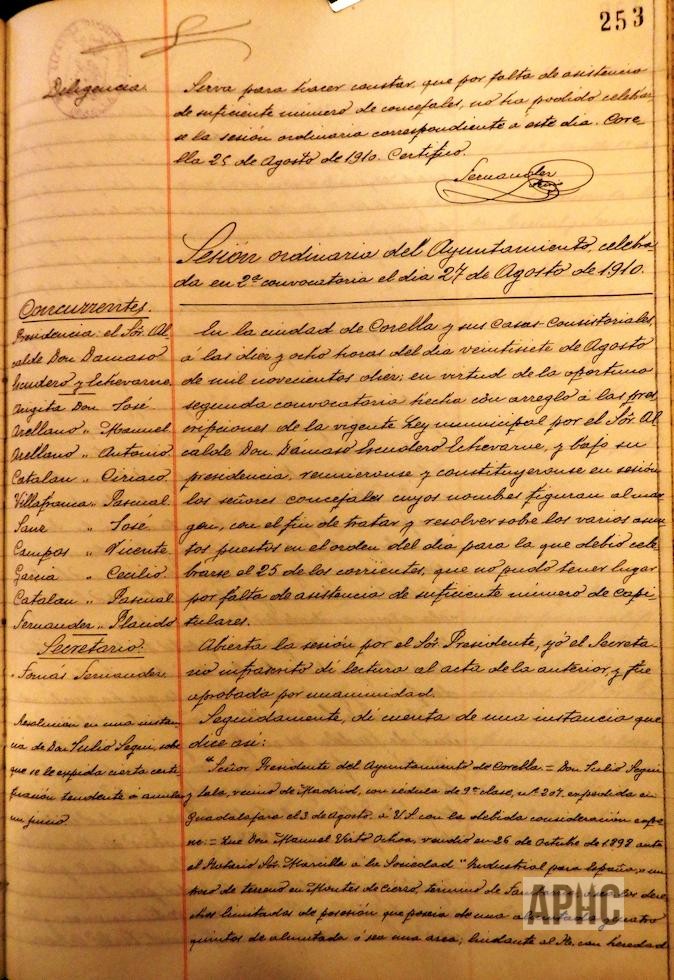 253
Deligencia.
Sirva para hacer constar, que por falta de asistencia
de suficiente número de concejales, no ha podido celebrar-
se la sesión ordinaria correspondiente á este dia. Core-
lla 25 de Agosto de 1910. Certifico.
Fernandez
Sesión ordinaria del Ayuntamiento, celebra-
da en 2ª convocatoria el dia 27 de Agosto de 1910.
Concurrentes.
Presidencia el Sór. Al-
calde Don Dámaso
Escudero y Echevarne.
Angita Don José
Arellano " Manuel
Arellano " Antonio
Catalan " Ciriaco
Villafranca " Pascual
Sanz " José
Campos " Vicente
Garcia " Cecilio
Catalan " Pascual
Fernandez " Plácido
Secretario.
Tomás Fernandez.
En la ciudad de Corella y sus Casas Consistoriales,
á las diez y ocho horas del dia veintisiete de Agosto
de mil novecientos diez; en virtud de la oportuna
segunda convocatoria hecha con arreglo á las pres-
cripciones de la vigente Ley municipal por el Sór. Al-
calde Don Dámaso Escudero Echevarne, y bajo su
presidencia, reunieronse y constituyeronse en sesión
los señores concejales cuyos nombres figuran al mar-
gen, con el fin de tratar y resolver sobe los varios asun-
tos puestos en el orden del dia para la que debió cele-
brarse el 25 de los corrientes, que no pudo tener lugar
por falta de asistencia de suficiente número de capi-
tulares.
Abierta la sesión por el Sór. Presidente, yó el Secreta-
rio infrascrito dí lectura al acta de la anterior, y fué
aprobada por unanimidad.
Resolución en una instan-
cia de Don Julio Seguí, sobe
que se le expida cierta certi-
ficación tendente á anular
un juicio.
Seguidamente, dí cuenta de una instancia que
dice así:
"Señor Presidente del Ayuntamiento de Corella. = Don Julio Seguí
y Lala, vecino de Madrid, con cédula de 9ª clase, nº 207, expedida en
Guadalajara el 3 de Agosto, á V.S. con la debida consideración expo-
ne: = Que Don Manuel Virto Ochoa, vendió en 26 de Octubre de 1892 ante
el Notario Sór. Marcilla á la Sociedad "Industrial para España," un
trozo de terreno en Montes de Cierzo, término de
chos limitados de posesión que poseia de una almutada y cuatro
quintos de almutada ó sea una area; lindante al N. con heredad
APHC